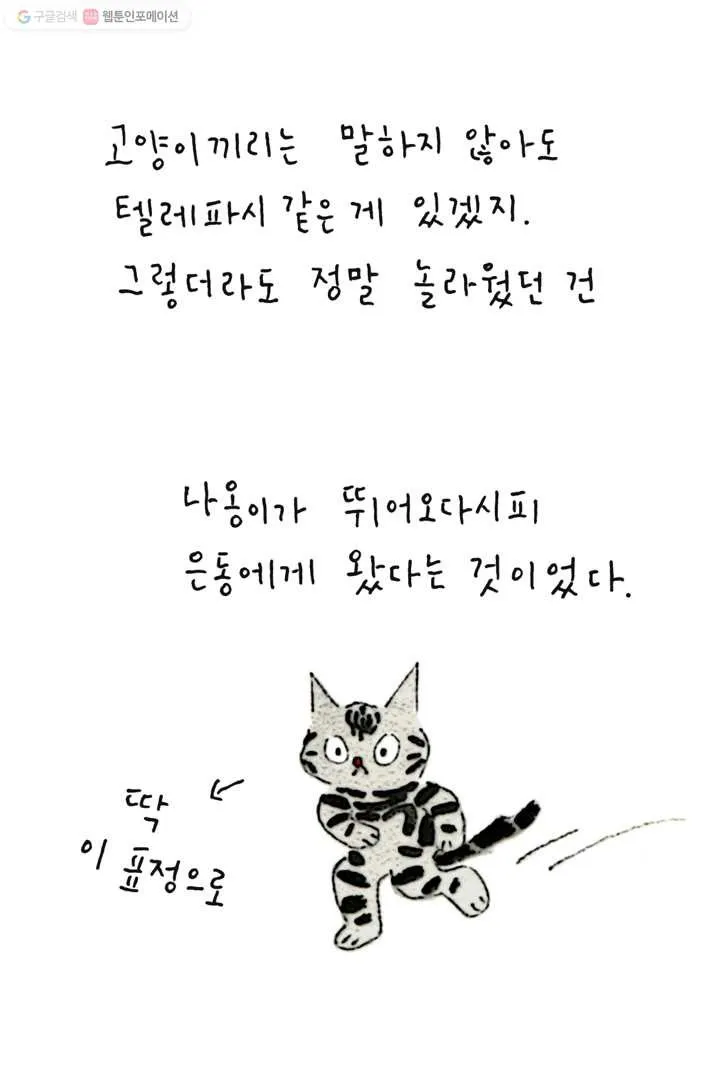 구글검색 웹툰인포메이션
고양이끼리는 말하지 않아도
텔레파시 같은 게 있겠지.
그렇더라도 정말 놀라웠던 건
나옹이가 뛰어오다시피
은동에게 왔다는 것이었다.
딱
이 표정으로